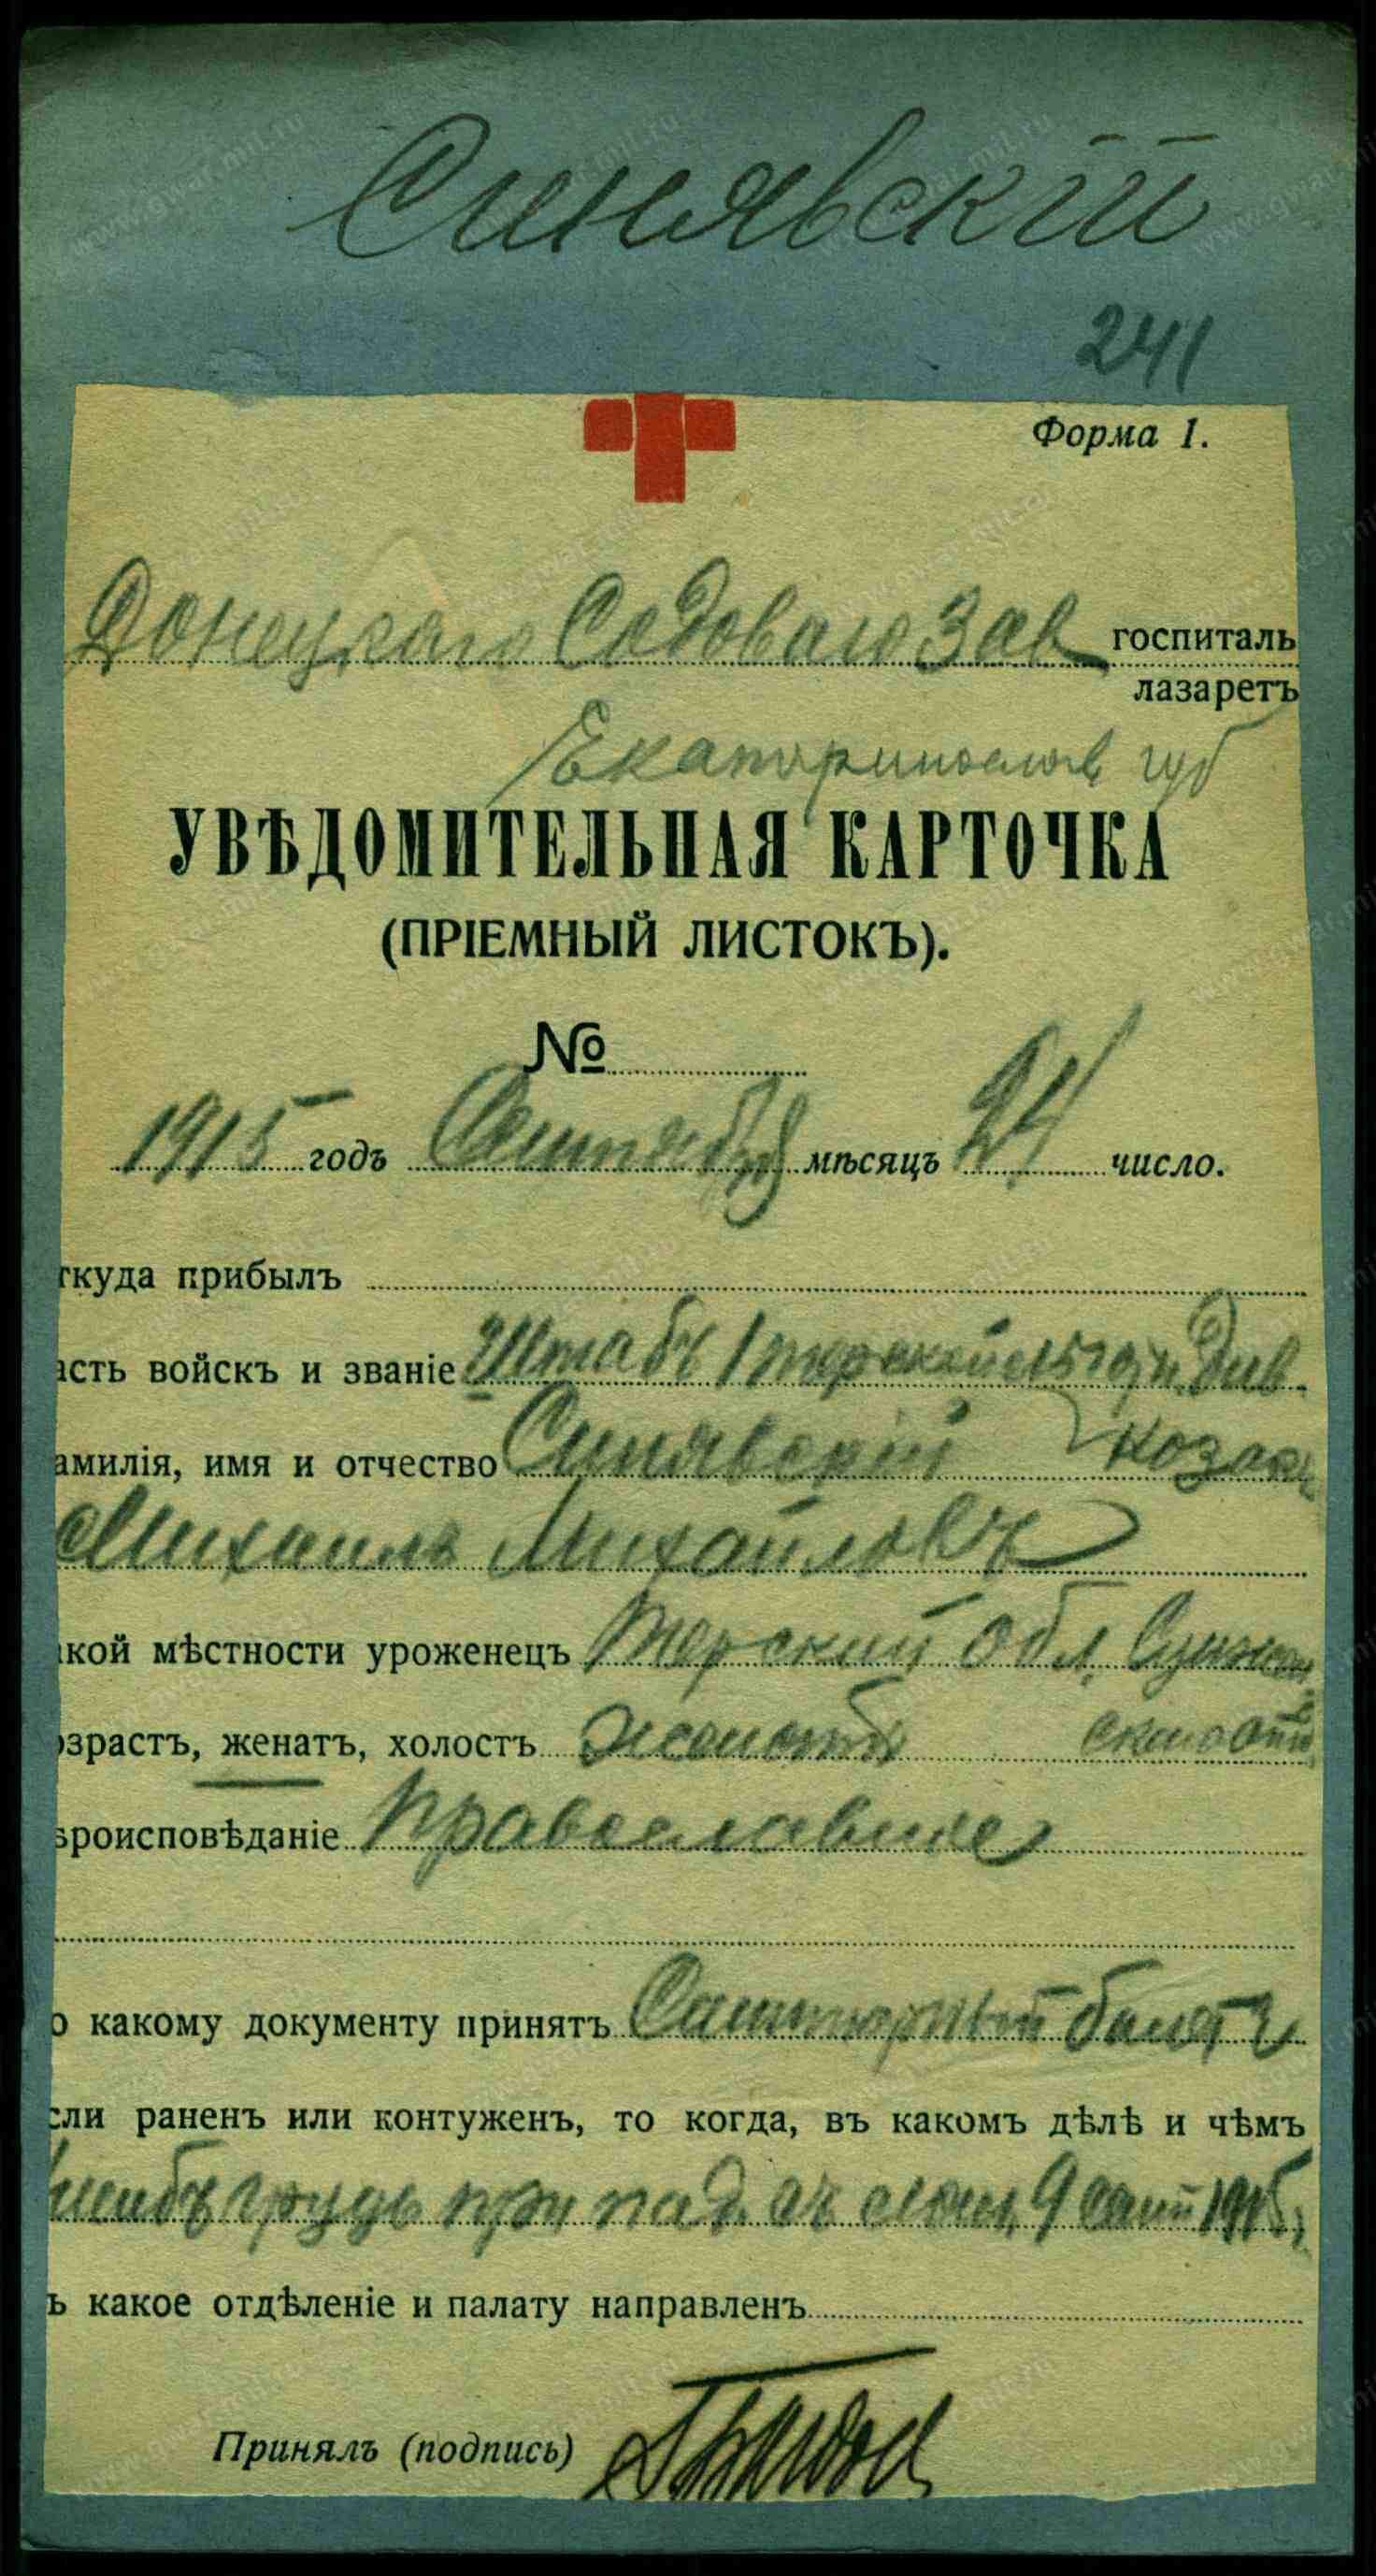 Синявскій
241
Форма 1.
Донецкаго Содоваго Зав госпиталь
лазаретъ
Екатеринослав губ
УВѢДОМИТЕЛЬНАЯ КАРТОЧКА
(ПРІЕМНЫЙ ЛИСТОКЪ).
№
1915 годъ Сентября мѣсяцъ 24 число.
ткуда прибылъ
асть войскъ и званіе Штабъ 1 Див
амилія, имя и отчество Синявскій козакъ
Михаилъ Михайловъ
акой мѣстности уроженецъ Терской Обл.
озрастъ, женатъ, холостъ
ѣроисповѣданіе Православное
о какому документу принятъ Санитарный билетъ
сли раненъ или контуженъ, то когда, въ какомъ дѣлѣ и чѣмъ
ушибъ груди при пад. съ лошад 9 сент 1915
ъ какое отдѣленіе и палату направленъ
Принялъ (подпись)